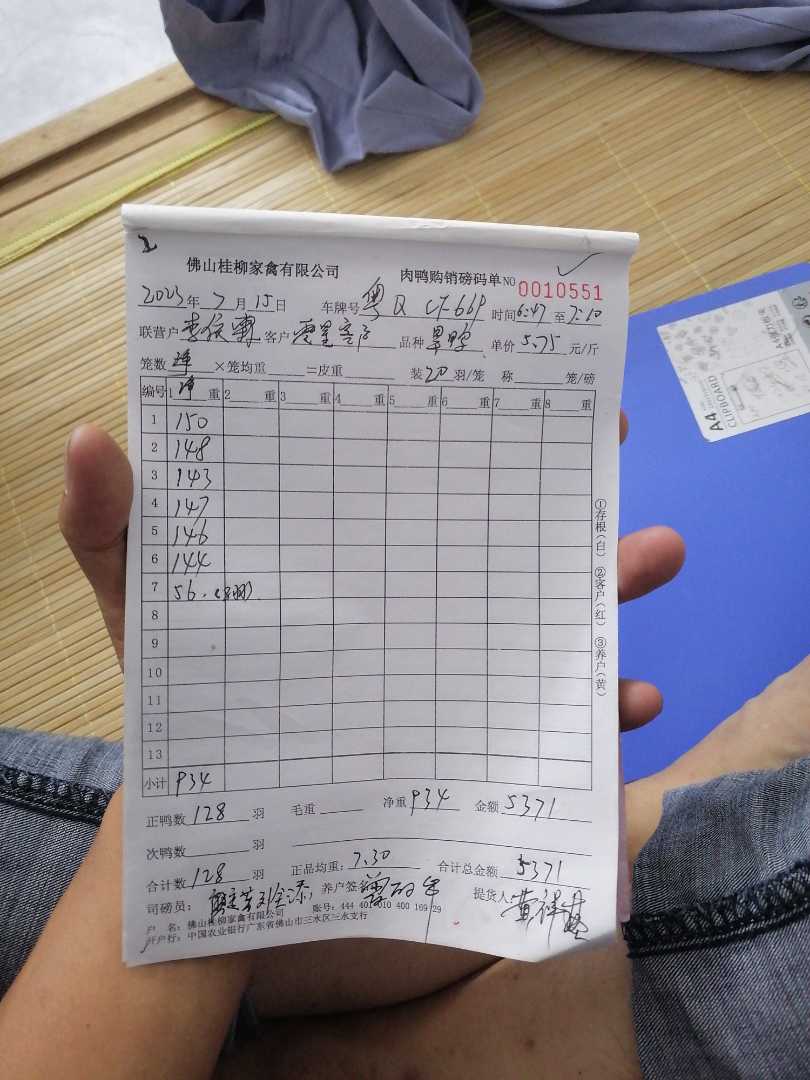 佛山桂柳家禽有限公司 肉鸭购销磅码单 NO 0010551
2023年7月15日 车牌号 粤Q 时间6:47至7:10
联营户 客户 零星客户 品种 单价 5.75 元/斤
笼数 净 ×笼均重 =皮重 装20羽/笼 称 笼/磅
编号 1 净 重 2 重 3 重 4 重 5 重 6 重 7 重 8 重
1 150
2 148
3 143
4 147
5 146
6 144
7 56.(8羽)
8
9
10
11
12
13
小计 934
①存根(白) ②客户(红) ③养户(黄)
正鸭数 128 羽 毛重 净重 934 金额 5371
次鸭数 羽
合计数 128 羽 正品均重: 7.30 合计总金额 5371
司磅员: 养户签 提货人
户 名: 佛山桂柳家禽有限公司 账号: 444 401 010 400 169 29
开户行: 中国农业银行广东省佛山市三水区三水支行
A4
CLIPBOARD